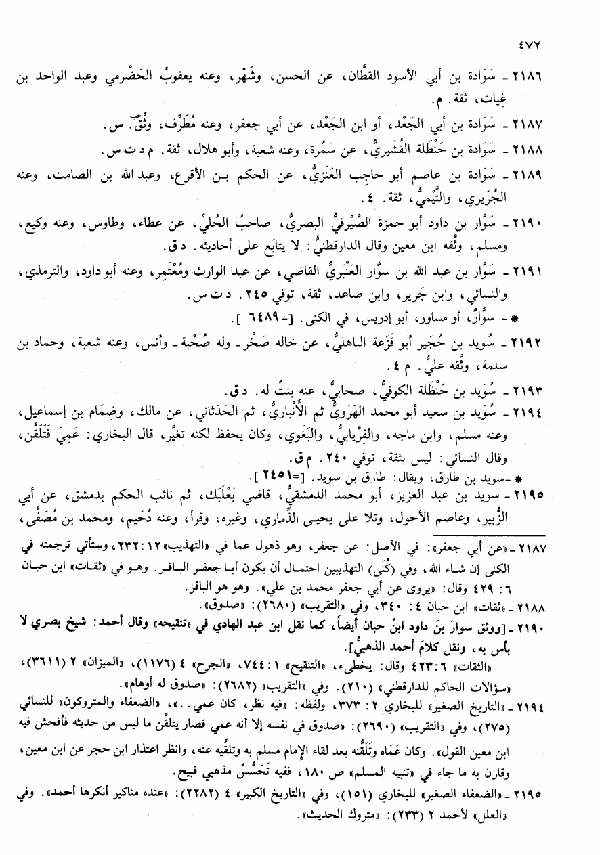 ٤٧٢
٢١٨٦ - سَوَادة بن أبي الأسود القطَّان، عن الحسن، وشَهْر، وعنه يعقوبُ الحَضْرمي وعبد الواحد بن
غياث، ثقة. م.
٢١٨٧ - سَوَادة بن أبي الجَعْد، أو ابن الجَعْد، عن أبي جعفر، وعنه مُطَرِّف، وثِّق. س.
٢١٨٨ - سَوَادة بن حَنْظَلة القُشَيريُّ، عن سَمُرة، وعنه شعبة، وأبو هلال، ثقة. م د ت س.
٢١٨٩ - سَوَادة بن عاصم أبو حاجِب العَنَزيُّ، عن الحكم بن الأقرع، وعبد الله بن الصامت، وعنه
الجُرَيري، والتَّيْميُّ، ثقة. ٤.
٢١٩٠ - سَوَّار بن داود أبو حمزة الصَّيْرفيُّ البصريُّ، صاحبُ الحُليِّ، عن عطاء، وطاوس، وعنه وكيع،
ومسلم، وثَّقه ابن معين وقال الدارقطنيُّ: لا يتابَع على أحاديثه. د ق.
٢١٩١ - سَوَّار بن عبد الله بن سوَّار العَنْبريُّ القاضي، عن عبد الوارث ومُعْتَمِر، وعنه أبو داود، والترمذي،
والنسائي، وابن جَرير، وابن صاعد، ثقة، توفي ٢٤٥. د ت س.
* - سوَّارٌ، أو مساور، أبو إدريس، في الكنى. [= ٦٤٨٩].
٢١٩٢ - سُويد بن حُجَير أبو قَزَعة الباهليُّ، عن خاله صَخْر - وله صُحْبة - وأنس، وعنه شعبة، وحماد بن
سلمة، وثَّقه عليٌّ. م ٤.
٢١٩٣ - سُوَيد بن حَنْظَلة الكوفيُّ، صحابيٌّ، عنه بنتٌ له. د ق.
٢١٩٤ - سُوَيد بن سعيد أبو محمد الهَرَويُّ ثم الأنْباريُّ، ثم الحَدَثاني، عن مالك، وضِمَام بن إسماعيل،
وعنه مسلم، وابن ماجه، والفِرْيابيُّ، والبَغَوي، وكان يحفظ لكنه تغيَّر، قال البخاري: عَمِيَ فَتَلَقَّن،
وقال النسائي: ليس بثقة، توفي ٢٤٠. م ق.
* - سويد بن طارق، ويقال: طارق بن سويد. [= ٢٤٥١].
٢١٩٥ - سويد بن عبد العزيز، أبو محمد الدمشقيُّ، قاضي بَعْلَبَك، ثم نائب الحكم بدمشق، عن أبي
الزُّبير، وعاصم الأحول، وتلا على يحيى الذِّماري، وغيره، وقرأ، وعنه دُحَيم، ومحمد بن مُصَفَّى،
٢١٨٧ - «عن أبي جعفر»: في الأصل: عن جعفر، وهو ذهول عما في «التهذيب» ١٢: ٢٣٢، وستأتي ترجمته في
الكنى إن شاء الله، وفي (كُنَى) التهذيبين احتمال أن يكون أبا جعفر الباقر. وهو في «ثقات» ابن حبان
٦: ٤٢٩ وقال: «يروي عن أبي جعفر محمد بن علي». وهو هو الباقر.
٢١٨٨ - «ثقات» ابن حبان ٤: ٣٤٠، وفي «التقريب» (٢٦٨٠): «صدوق».
٢١٩٠ - [ووثق سوارَ بن داود ابنُ حبان أيضاً، كما نقل ابن عبد الهادي في «تنقيحه» وقال أحمد: شيخ بصري لا
بأس به، ونقل كلامَ أحمد الذهبيُّ].
«الثقات» ٦: ٤٢٣ وقال: يخطىء، «التنقيح» ١: ٧٤٤، «الجرح» ٤ (١١٧٦)، «الميزان» ٢ (٣٦١١)،
«سؤالات الحاكم للدارقطني» (٢١٠). وفي «التقريب» (٢٦٨٢): «صدوق له أوهام».
٢١٩٤ - «التاريخ الصغير» للبخاري ٢: ٣٧٣، ولفظه: «فيه نظر، كان عمي..»، «الضعفاء والمتروكون» للنسائي
(٢٧٥)، وفي «التقريب» (٢٦٩٠): «صدوق في نفسه إلا أنه عمي فصار يتلقَّن ما ليس من حديثه فأفحش فيه
ابن معين القول». وكان عَمَاه وتَلَقُّنه بعد لقاء الإمام مسلم به وتلقِّيه عنه، وانظر اعتذار ابن حجر عن ابن معين،
وقارن به ما جاء في «تنبيه المسلم» ص ١٨٠، ففيه تَحَسُّسٌ مذهبي قبيح.
٢١٩٥ - «الضعفاء الصغير» للبخاري (١٥١)، وفي «التاريخ الكبير» ٤ (٢٢٨٢): «عنده مناكير أنكرها أحمد». وفي
«العلل» لأحمد ٢ (٢٣٣): «متروك الحديث».